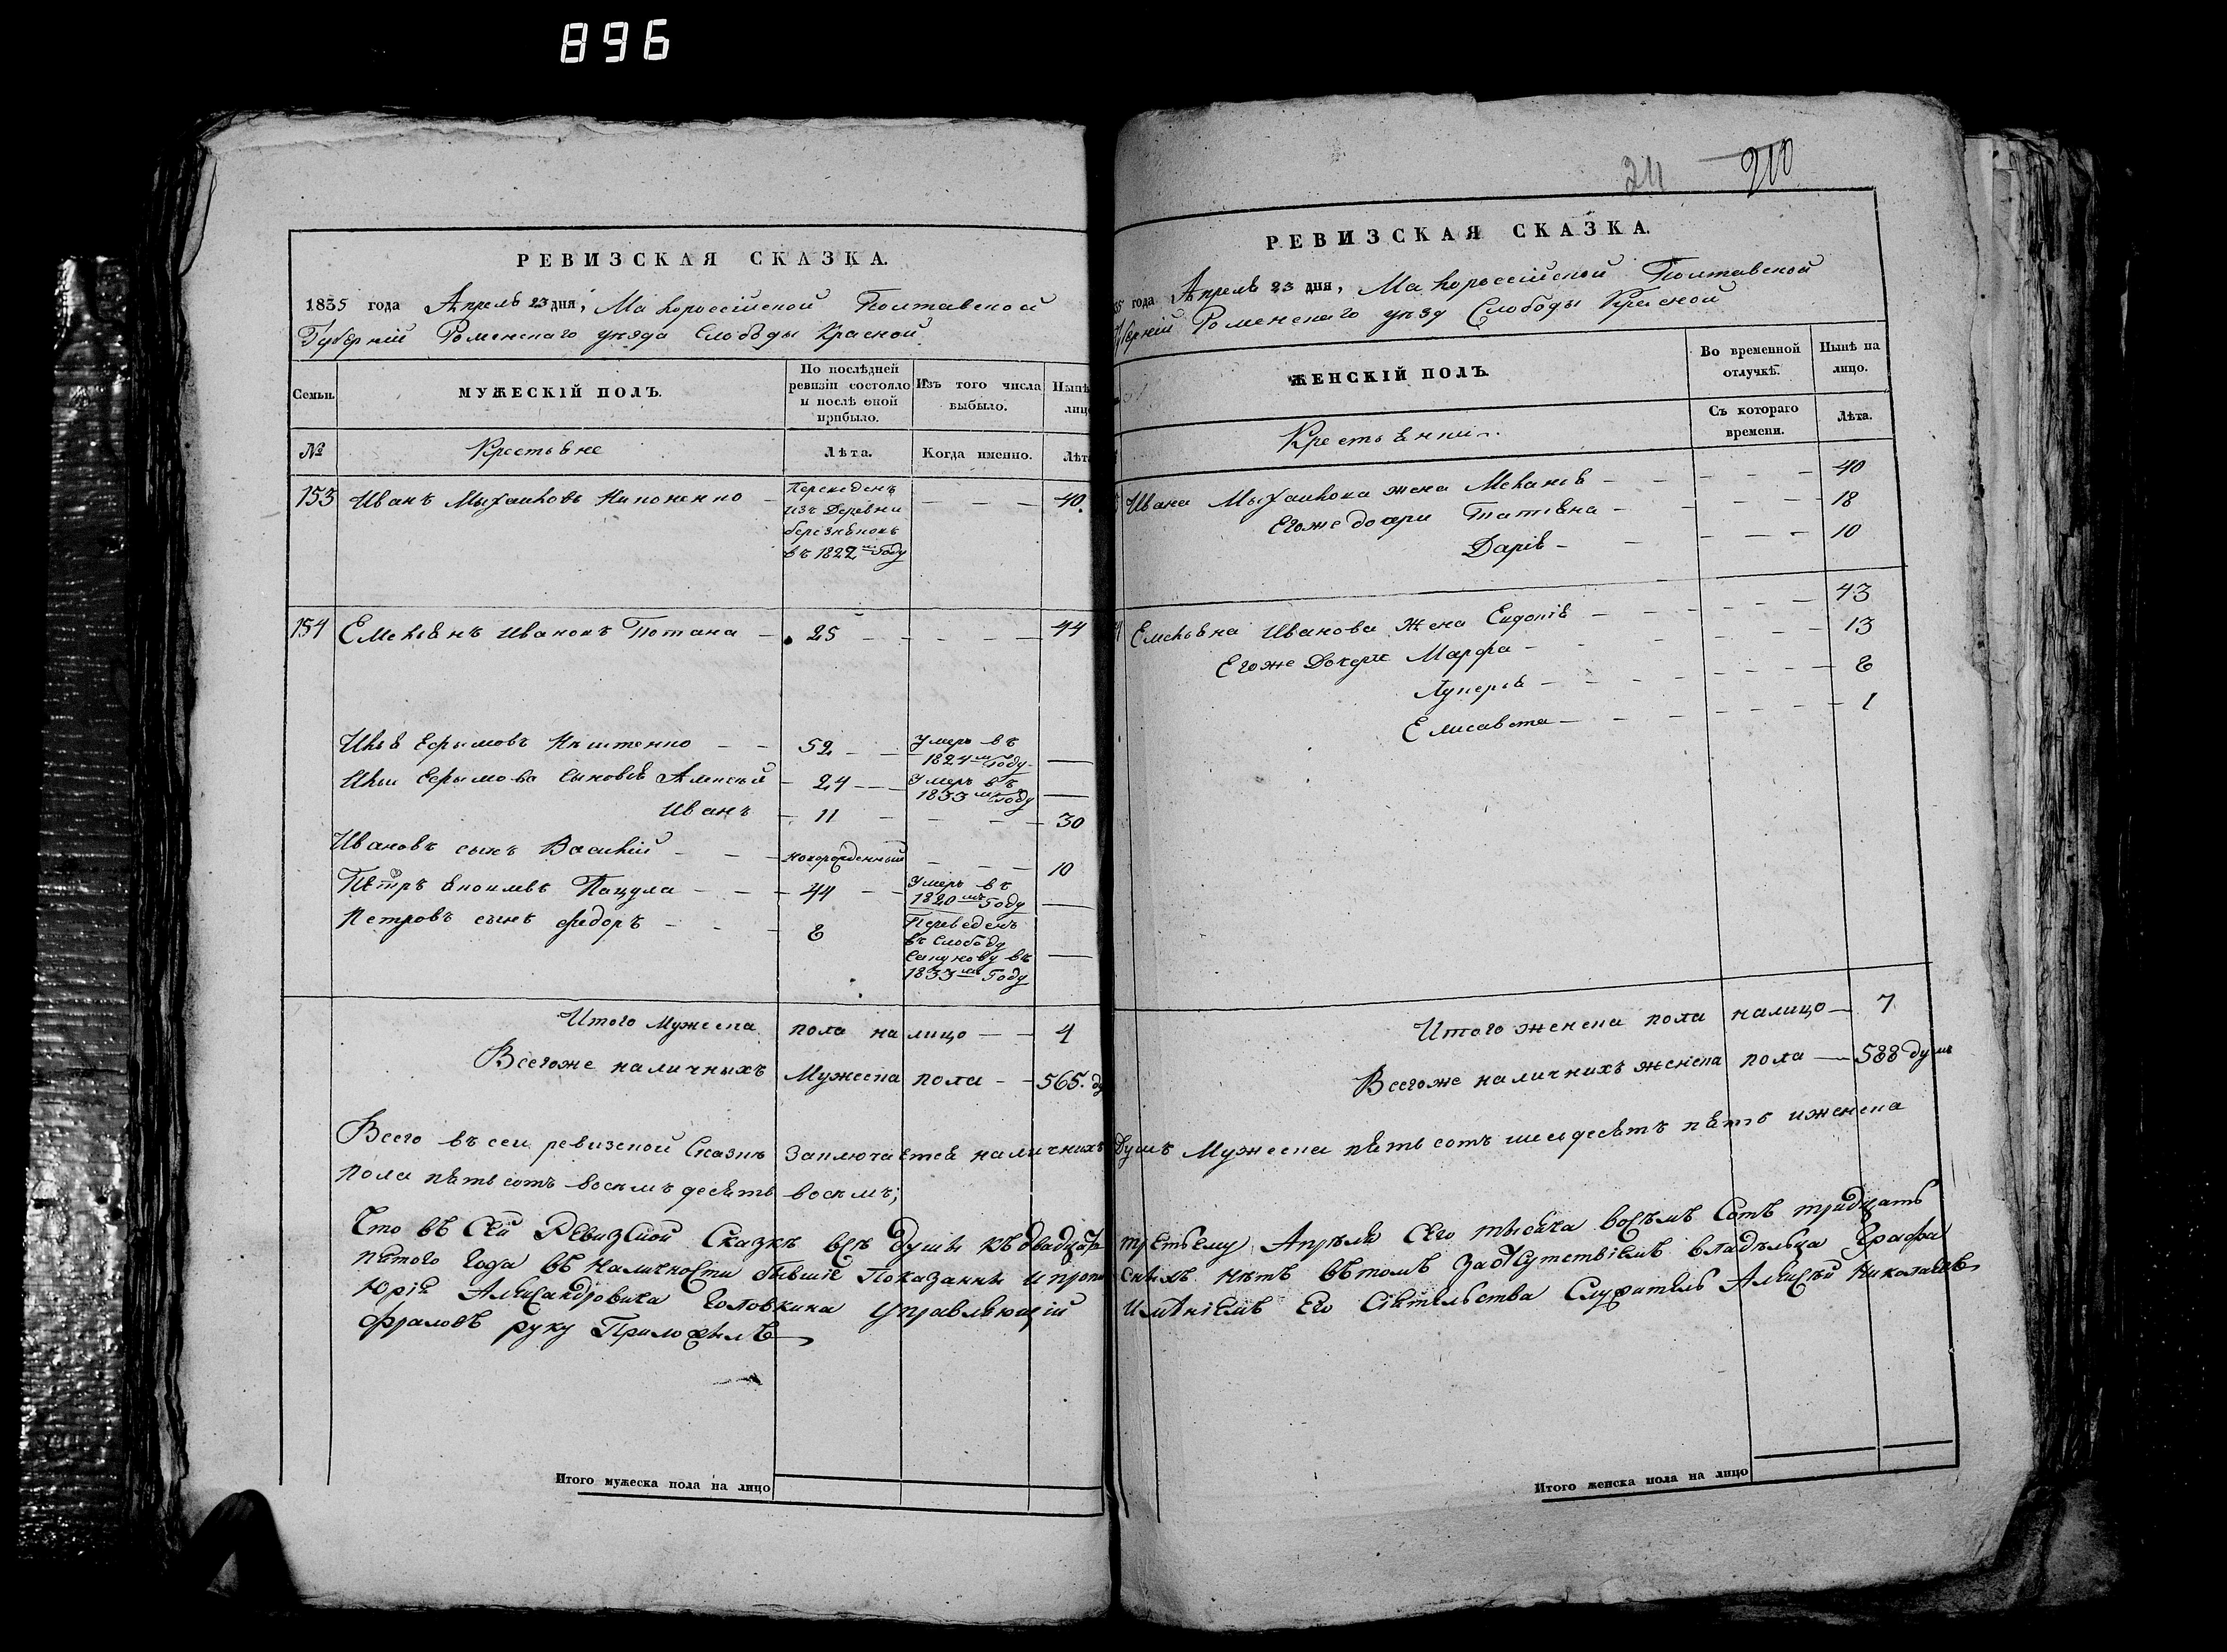 896
РЕВИЗСКАЯ СКАЗКА.
1835 года Апрель 23 дня, Малороссійской Полтавской
Губерніи Роменскаго уѣзда Слободы Красной
Семьи.
МУЖЕСКІЙ ПОЛЪ.
По послѣдней ревизіи состояло и послѣ оной прибыло.
Изъ того числа выбыло.
Нынѣ лиц
№
Крестьяне
Лѣта.
Когда именно.
Лѣта
153 Иванъ Мыхайловъ — Переведенъ — — — 40.
изъ Деревни
въ 1822 Году
154 Емельянъ Ивановъ Потапа — 25 — — — 44
Илья Ефымовъ — — 52 — — Умеръ въ
1824 м Году —
Ильи Ефымова сыновья Алексѣй — 24 — — Умеръ въ
1833 м Году —
Иванъ — 11 — — — 30
Ивановъ сынъ Василій — — — новорожденный — — 10
Пётръ Пацула — — — 44 — — Умеръ въ
1820 мъ Году —
Петровъ сынъ Федоръ — — — 8 Переведенъ
въ Слободу
въ —
1833 м Году
Итого мужеска пола на лицо — — 4
Всегоже наличныхъ Мужеска пола — — 565. ду
24 210
РЕВИЗСКАЯ СКАЗКА.
35 года Апрель 23 дня, Малороссійской Полтавской
Губерніи Роменскаго уѣзд Слободы Красной
ЖЕНСКІЙ ПОЛЪ.
Во временной отлучкѣ.
Нынѣ на лицо.
Съ котораго времени.
Лѣта.
Ивана Мыхайлова жена Меланія — — — — — 40
Егоже дочери Татіяна — — — — — 18
Дарія — — — — — 10
Емельяна Иванова Жена Евдокія — — — — — 43
Егоже Дочери Марфа — — — — — 13
Лукерія — — — — — 8
Елисавета — — — — — 1
Итого женска пола налицо — 7
Всегоже наличнихъ женска пола — 588 душъ
Всего въ сеи ревизской Сказкѣ Заключается наличнихъ Душъ Мужеска пять сотъ шесдесятъ пять иженска
пола пять сотъ восемъ десять восемъ;
Что въ Сей Ревизской Сказкѣ всѣ души къ двадцать третьему Апрѣля Сего тысяча восѣмъ Сотъ тридцать
пятого Года въ наличности бывшіе Показанны и пропи снымъ нѣтъ вѣтомъ За отсутствіемъ владѣльца Графа
Юрія Александровича Головкина Управляющій имѣніемъ Его Сіятельства Служитель Алексѣй Николаевъ
Фраловъ руку Приложилъ
Итого мужеска пола на лицо
Итого женска пола на лицо